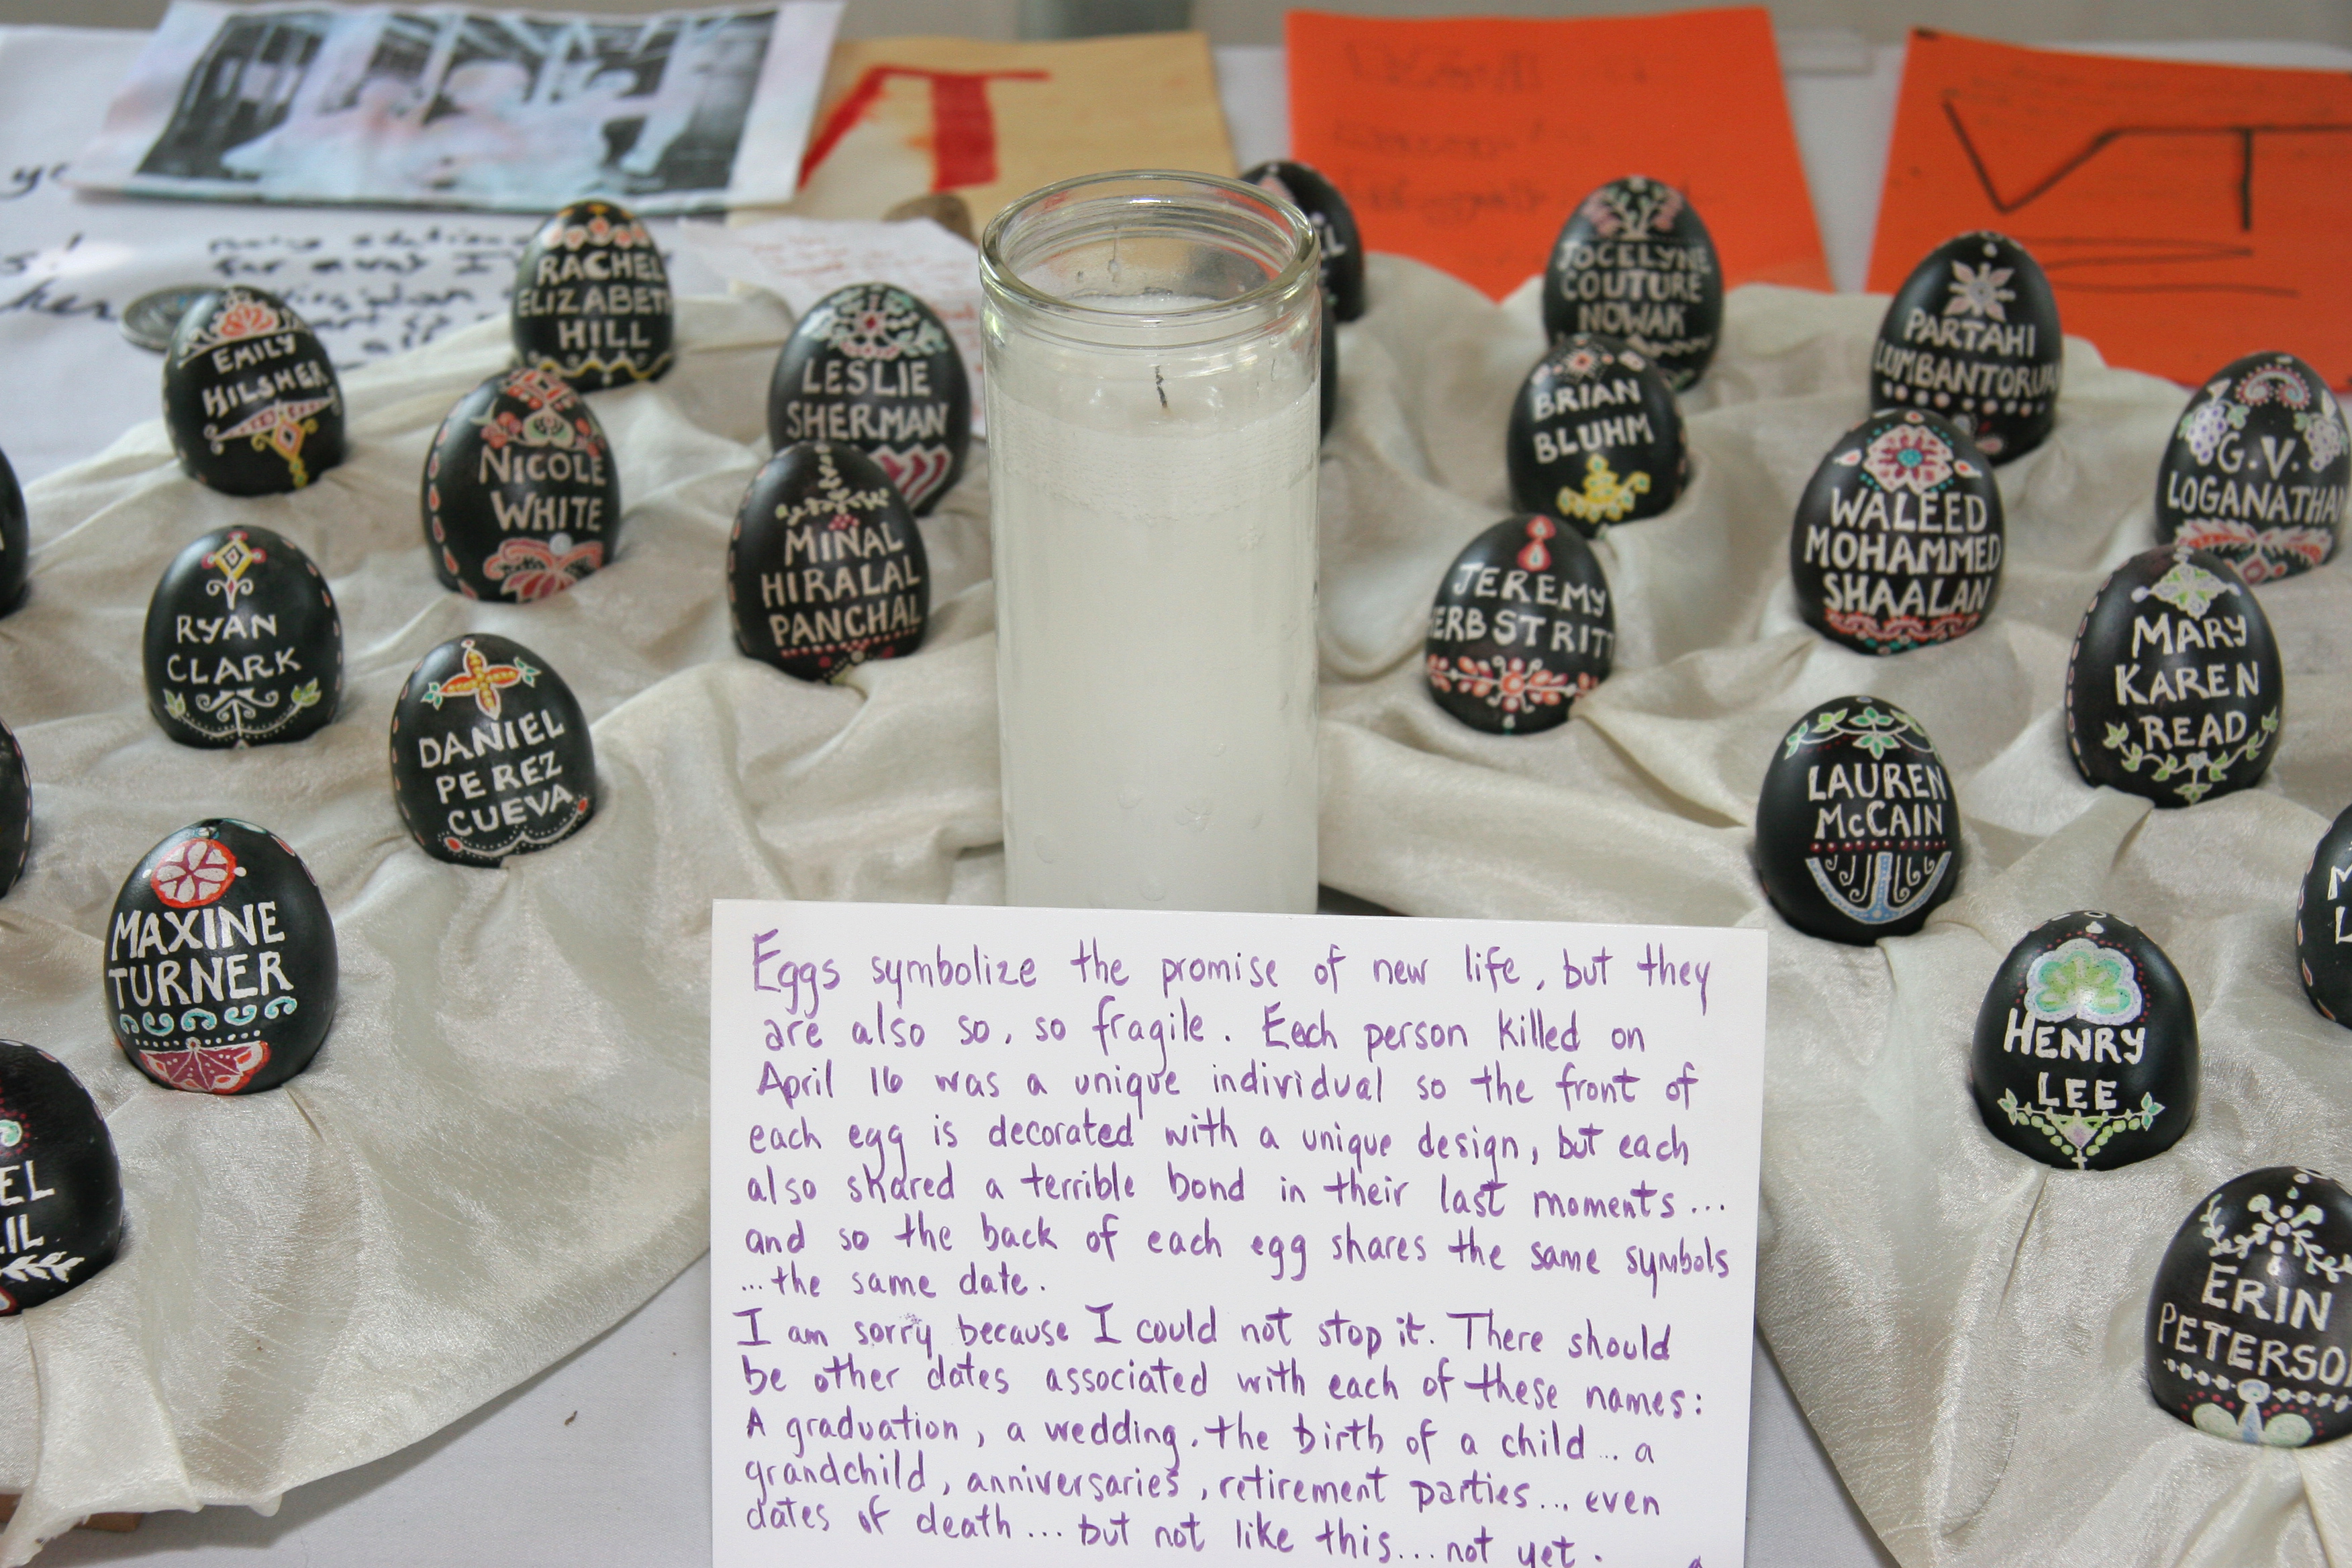 VT
VT
RACHEL
ELIZABETH
HILL
EMILY
HILSHER
LESLIE
SHERMAN
NICOLE
WHITE
MINAL
HIRALAL
PANCHAL
RYAN
CLARK
DANIEL
PEREZ
CUEVA
MAXINE
TURNER
EL
IL
JOCELYNE
COUTURE
NOWAK
PARTAHI
LUMBANTORUA
BRIAN
BLUHM
G.V.
LOGANATHAN
WALEED
MOHAMMED
SHAALAN
JEREMY
ERBSTRITT
MARY
KAREN
READ
LAUREN
McCAIN
HENRY
LEE
ERIN
PETERSO
Eggs symbolize the promise of new life, but they
are also so, so fragile. Each person killed on
April 16 was a unique individual so the front of
each egg is decorated with a unique design, but each
also shared a terrible bond in their last moments...
and so the back of each egg shares the same symbols
...the same date.
I am sorry because I could not stop it. There should
be other dates associated with each of these names:
A graduation, a wedding, the birth of a child... a
grandchild, anniversaries, retirement parties... even
dates of death... but not like this... not yet.